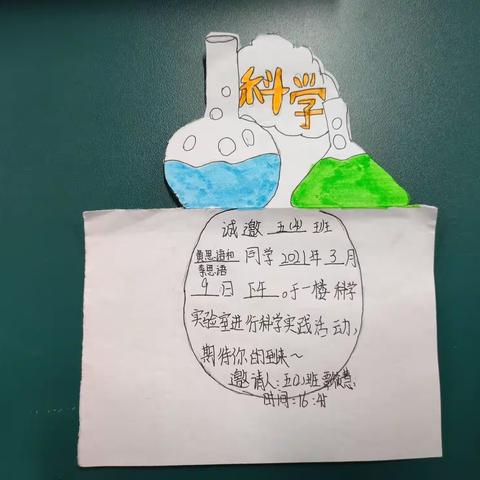 科学
诚邀 五(4) 班
黄思语和 同学 2021年 3 月
李思语
9 日 下午 。于一楼科学
实验室进行科学实践活动,
期待你的到来~
邀请人:五(2)班
时间:16:45